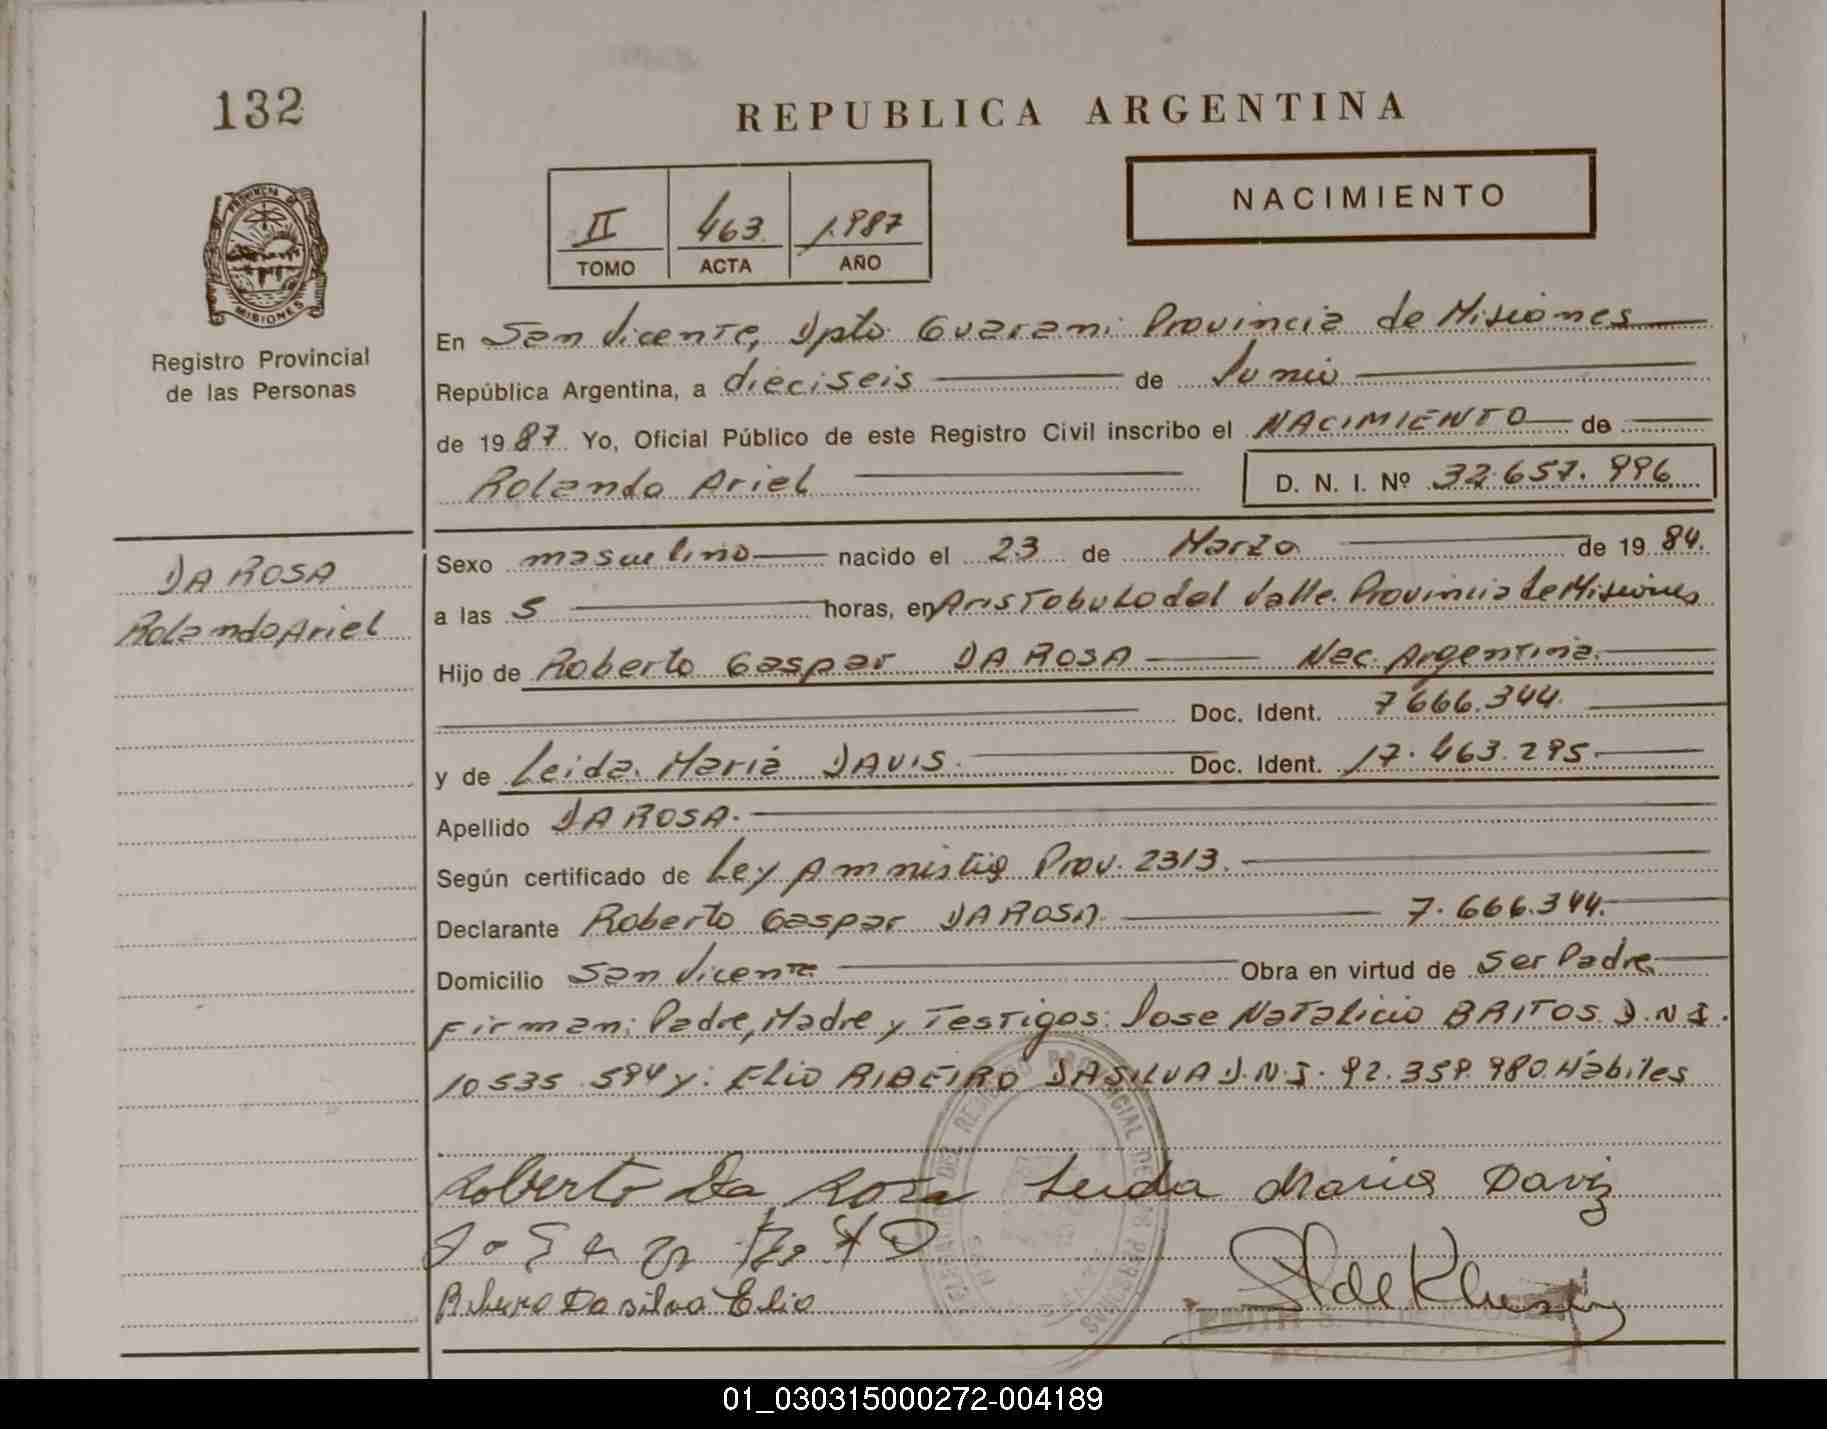 132
REPUBLICA ARGENTINA
NACIMIENTO
II 463 1.987
TOMO ACTA AÑO
PROVINCIA DE
MISIONES
Registro Provincial
de las Personas
En San Vicente, Dpto Guarani Provincia de Misiones
República Argentina, a dieciseis de Junio
de 1987 Yo, Oficial Público de este Registro Civil inscribo el NACIMIENTO de
Rolando Ariel D. N. I. Nº 32.657.996
DA ROSA
Rolando Ariel
Sexo masculino nacido el 23 de Marzo de 1984.
a las 5 horas, en Aristobulo del Valle. Provincia de Misiones
Hijo de Roberto Gaspar DA ROSA Nac. Argentina.
Doc. Ident. 7666.344.
y de Leida Maria DAVIS. Doc. Ident. 17.463.295
Apellido DA ROSA.
Según certificado de Ley Amnistia Prov. 2313.
Declarante Roberto Gaspar DA ROSA. 7.666.344.
Domicilio San Vicente Obra en virtud de Ser Padre
Firman: Padre, Madre y Testigos: Jose Natalicio BRITOS D.N.I.
10535.594 y: Elio RIBEIRO DASILVA D.N.I. 92.359.980 Hábiles
Roberto Da Rosa Leida Maria Daviz
Ribeiro Da silva Elio
01_030315000272-004189